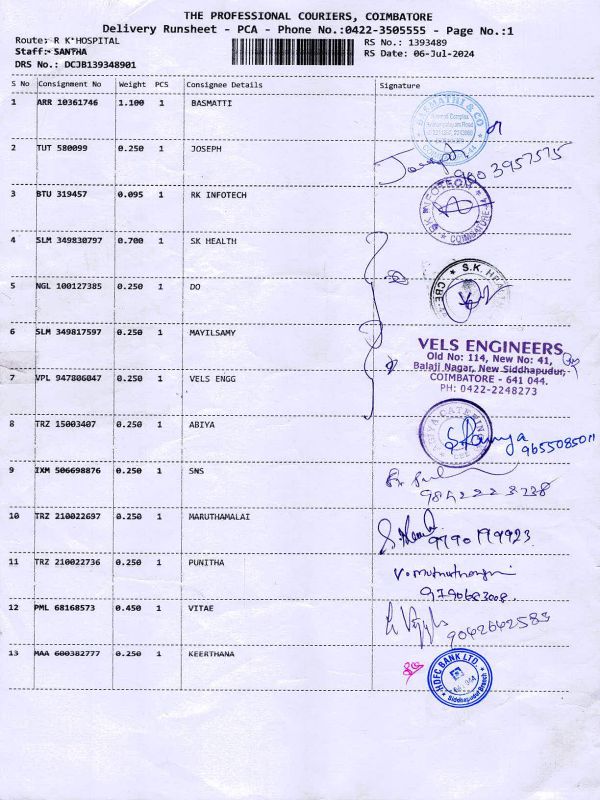 THE PROFESSIONAL COURIERS, COIMBATORE
Delivery Runsheet - PCA - Phone No.:0422-3505555 - Page No.:1
Route: R K HOSPITAL RS No.: 1393489
Staff: SANTHA RS Date: 06-Jul-2024
DRS No.: DCJB139348901
S No Consignment No Weight PCS Consignee Details Signature
1 ARR 10361746 1.100 1 BASMATTI
2 TUT 580099 0.250 1 JOSEPH Joseph
9003957575
3 BTU 319457 0.095 1 RK INFOTECH
RK INFOTECH COIMBATORE-44
4 SLM 349830797 0.700 1 SK HEALTH
5 NGL 100127385 0.250 1 DO
S.K.
6 SLM 349817597 0.250 1 MAYILSAMY
VELS ENGINEERS
Old No: 114, New No: 41,
Balaji Nagar, New Siddhapudur,
COIMBATORE - 641 044.
PH: 0422-2248273
7 VPL 947806047 0.250 1 VELS ENGG
8 TRZ 15003407 0.250 1 ABIYA
9655085011
9 IXM 506698876 0.250 1 SNS
10 TRZ 210022697 0.250 1 MARUTHAMALAI
9790179923
11 TRZ 210022736 0.250 1 PUNITHA
9790683008
12 PML 68168573 0.450 1 VITAE
9042642583
13 MAA 600382777 0.250 1 KEERTHANA
HDFC BANK LTD.
Siddhapudur Branch